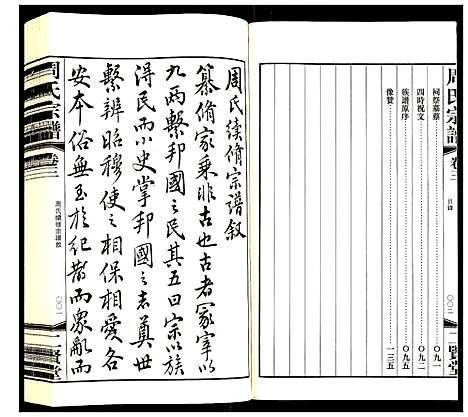 周氏宗譜
卷三
目錄
〇〇二
二賢堂
祠祭墓祭 〇九一
四時祝文 〇九二
族譜原序 〇九五
像贊 一三五
周氏續脩宗譜叙
纂脩家乘非古也古者冢宰以
九兩繫邦國之民其五曰宗以族
得民而小史掌邦國之志奠世
繫辨昭穆使之相保相愛各
安本俗無至於紀散而衆亂而
周氏宗譜
卷三
周氏續修宗譜敘
二賢堂